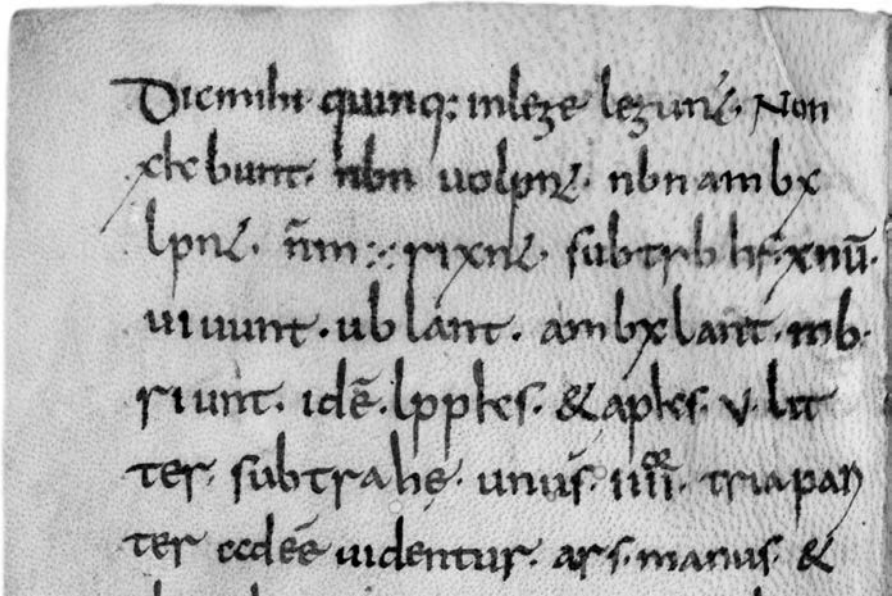 Dic mihi quinq: in lege legunt. Non
bunt. nbn uolpnt. nbn ambx
lpnt. n̄m rixnt. subtrb hf xnū.
uiuunt. ublant. ambxlant. mb.
riunt. idē. & v. lit
ter. subtrahe. unus. iiii. tria par
ter uidentur. ars. manus. &